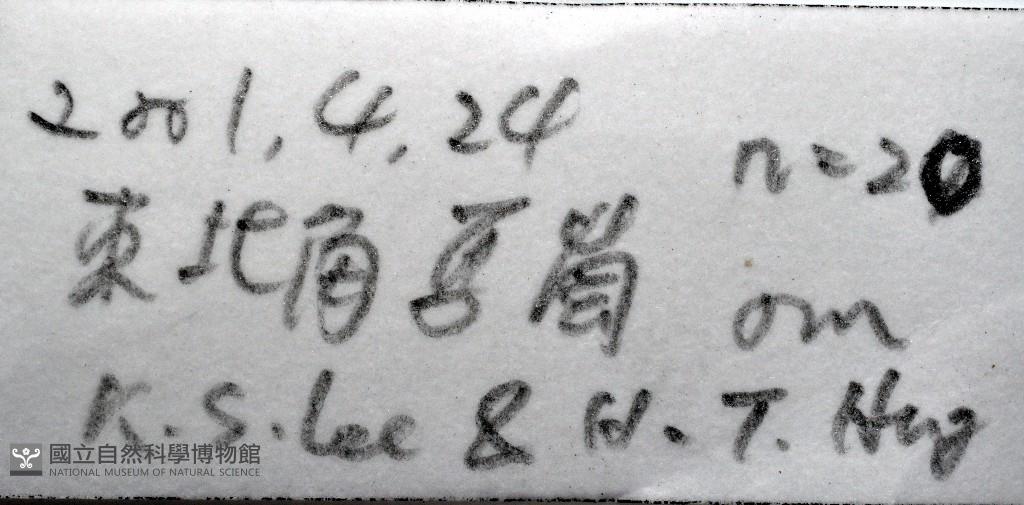 2001,4,24
n=20
東北角馬崗
0m
K.S.Lee & H.T.
國立自然科學博物館
NATIONAL MUSEUM OF NATURAL SCIENCE